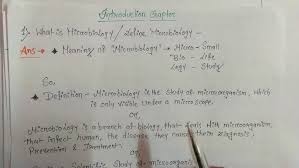 Introduction Chapter
1) What is Microbiology / Define Microbiology -
Ans → • Meaning of "Microbiology" → Micro - Small
Bio - Life
Logy - Study
So,
• Definition - Microbiology is the Study of microorganism, which
is only visible under a microscope.
OR,
Microbiology is a branch of biology, that deals with microorganism,
that infect human, the disease they cause, their diagnosis,
Prevention & Treatment.
OR,
Scientific Study of microorganism